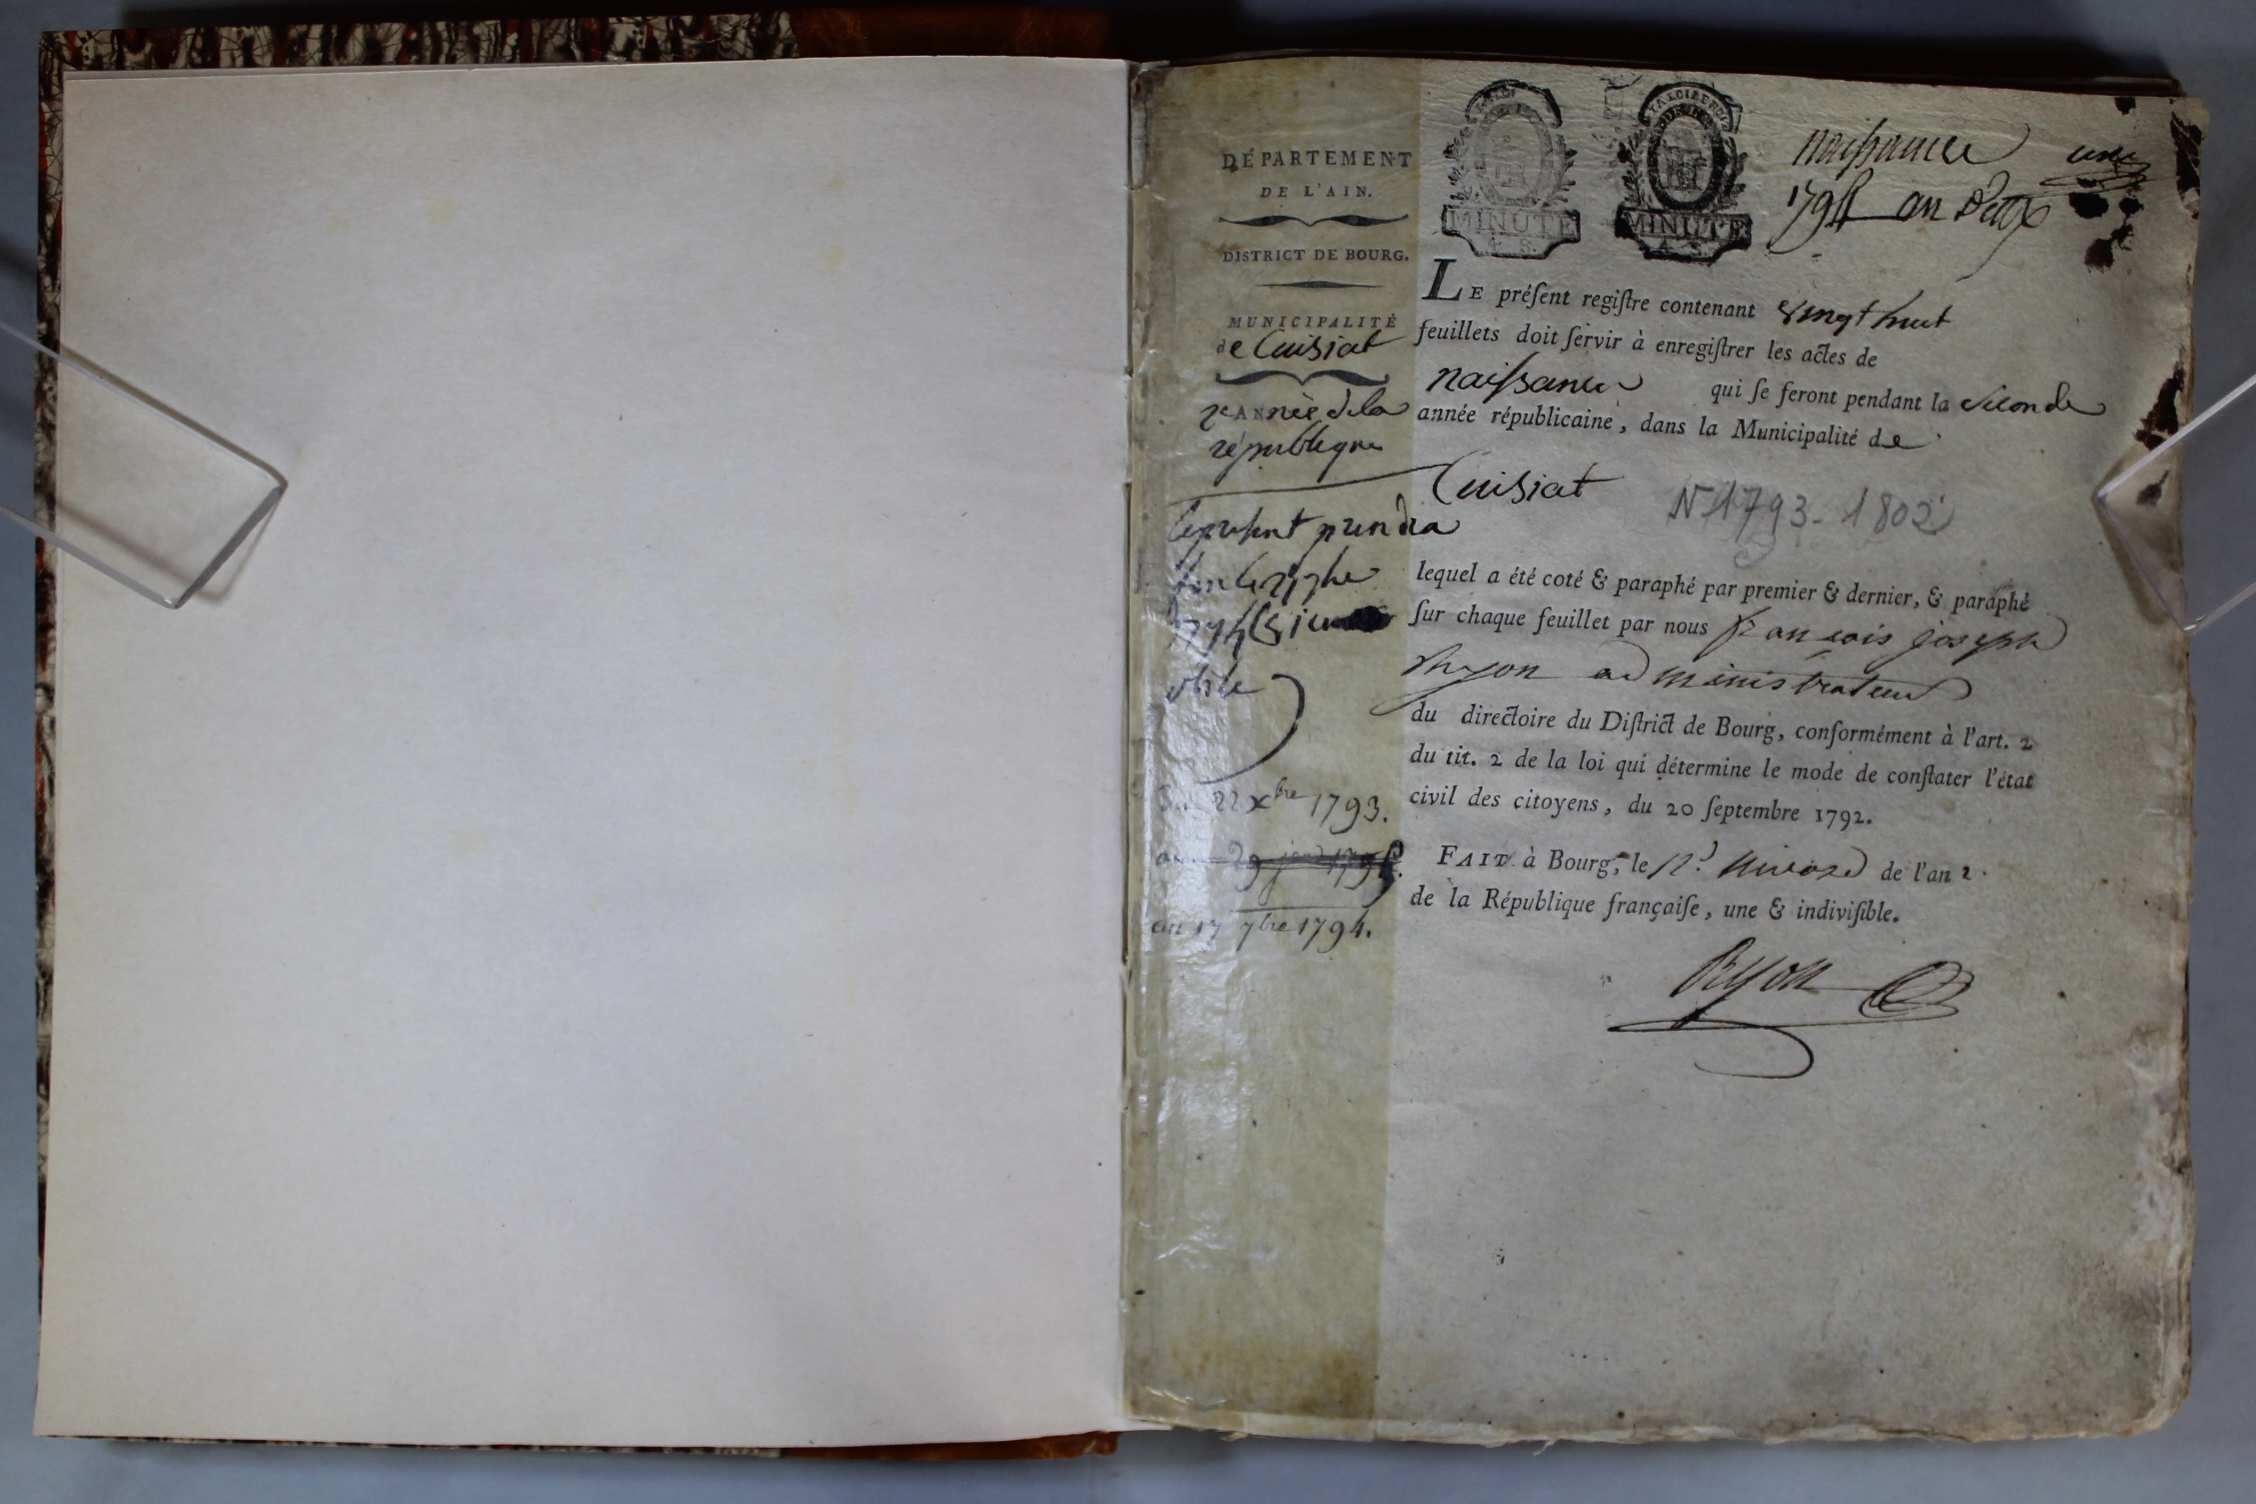 DÉPARTEMENT
DE L'AIN.
DISTRICT DE BOURG.
MUNICIPALITÉ
de Cuisiat
2e ANnée de la
république
le présent prendra
Du 22 Xbre 1793.
au 29
au 17 7bre 1794.
LA LOI LE ROI
MINUTE
4. S.
LA LOI LE ROI
MINUTE
4. S.
naissance
une
1794 an deux
LE préſent regiſtre contenant vingt huit
feuillets doit ſervir à enregiſtrer les actes de
naissance qui ſe feront pendant la seconde
année républicaine, dans la Municipalité de
Cuisiat
N 1793-1802
lequel a été coté & paraphé par premier & dernier, & paraphé
ſur chaque feuillet par nous françois joseph
administrateur
du directoire du Diſtrict de Bourg, conformément à l'art. 2
du tit. 2 de la loi qui détermine le mode de conſtater l'état
civil des citoyens, du 20 ſeptembre 1792.
FAIT à Bourg, le nivose de l'an 2.
de la République françaiſe, une & indiviſible.